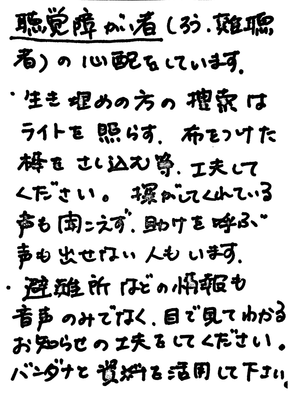 聴覚障がい者(ろう、難聴
者)の心配をしています。
・生き埋めの方の捜索は
ライトを照らす、布をつけた
棒をさし込む等、工夫して
ください。探がしてくれている
声も聞こえず、助けを呼ぶ
声も出せない人もいます。
・避難所などの情報も
音声のみでなく、目で見てわかる
お知らせの工夫をしてください。
バンダナと資料を活用して下さい。